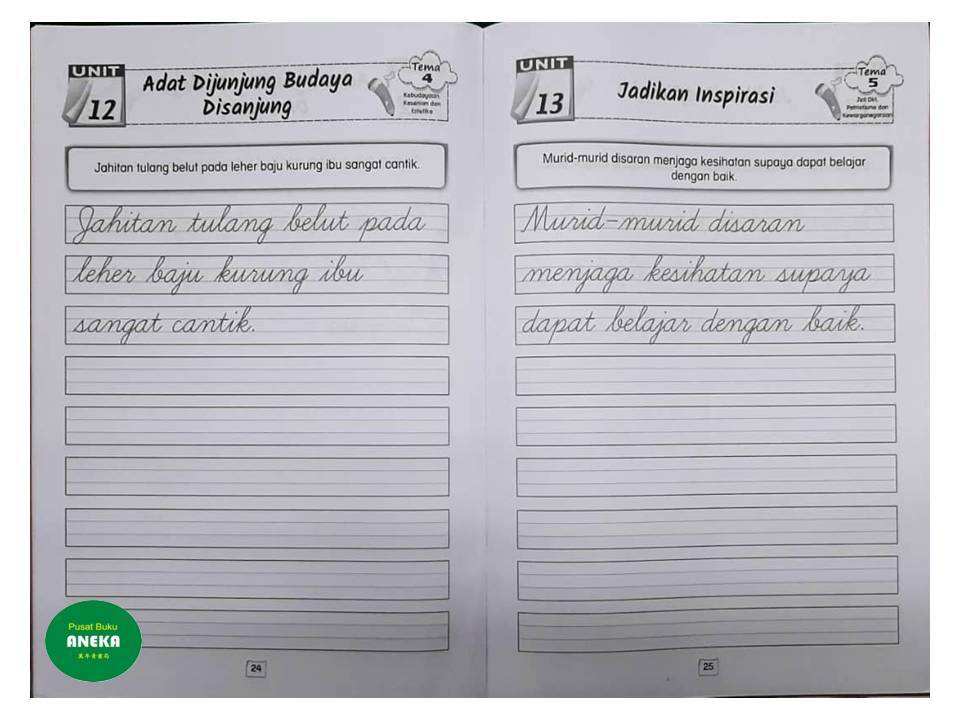 UNIT
12
Adat Dijunjung Budaya
Disanjung
Tema
4
Kebudayaan,
Kesenian dan
Estetika
Jahitan tulang belut pada leher baju kurung ibu sangat cantik.
Jahitan tulang belut pada
leher baju kurung ibu
sangat cantik.
24
UNIT
13
Jadikan Inspirasi
Tema
5
Jati Diri,
Patriotisme dan
Kewarganegaraan
Murid-murid disaran menjaga kesihatan supaya dapat belajar
dengan baik.
Murid-murid disaran
menjaga kesihatan supaya
dapat belajar dengan baik.
25
Pusat Buku
ANEKA